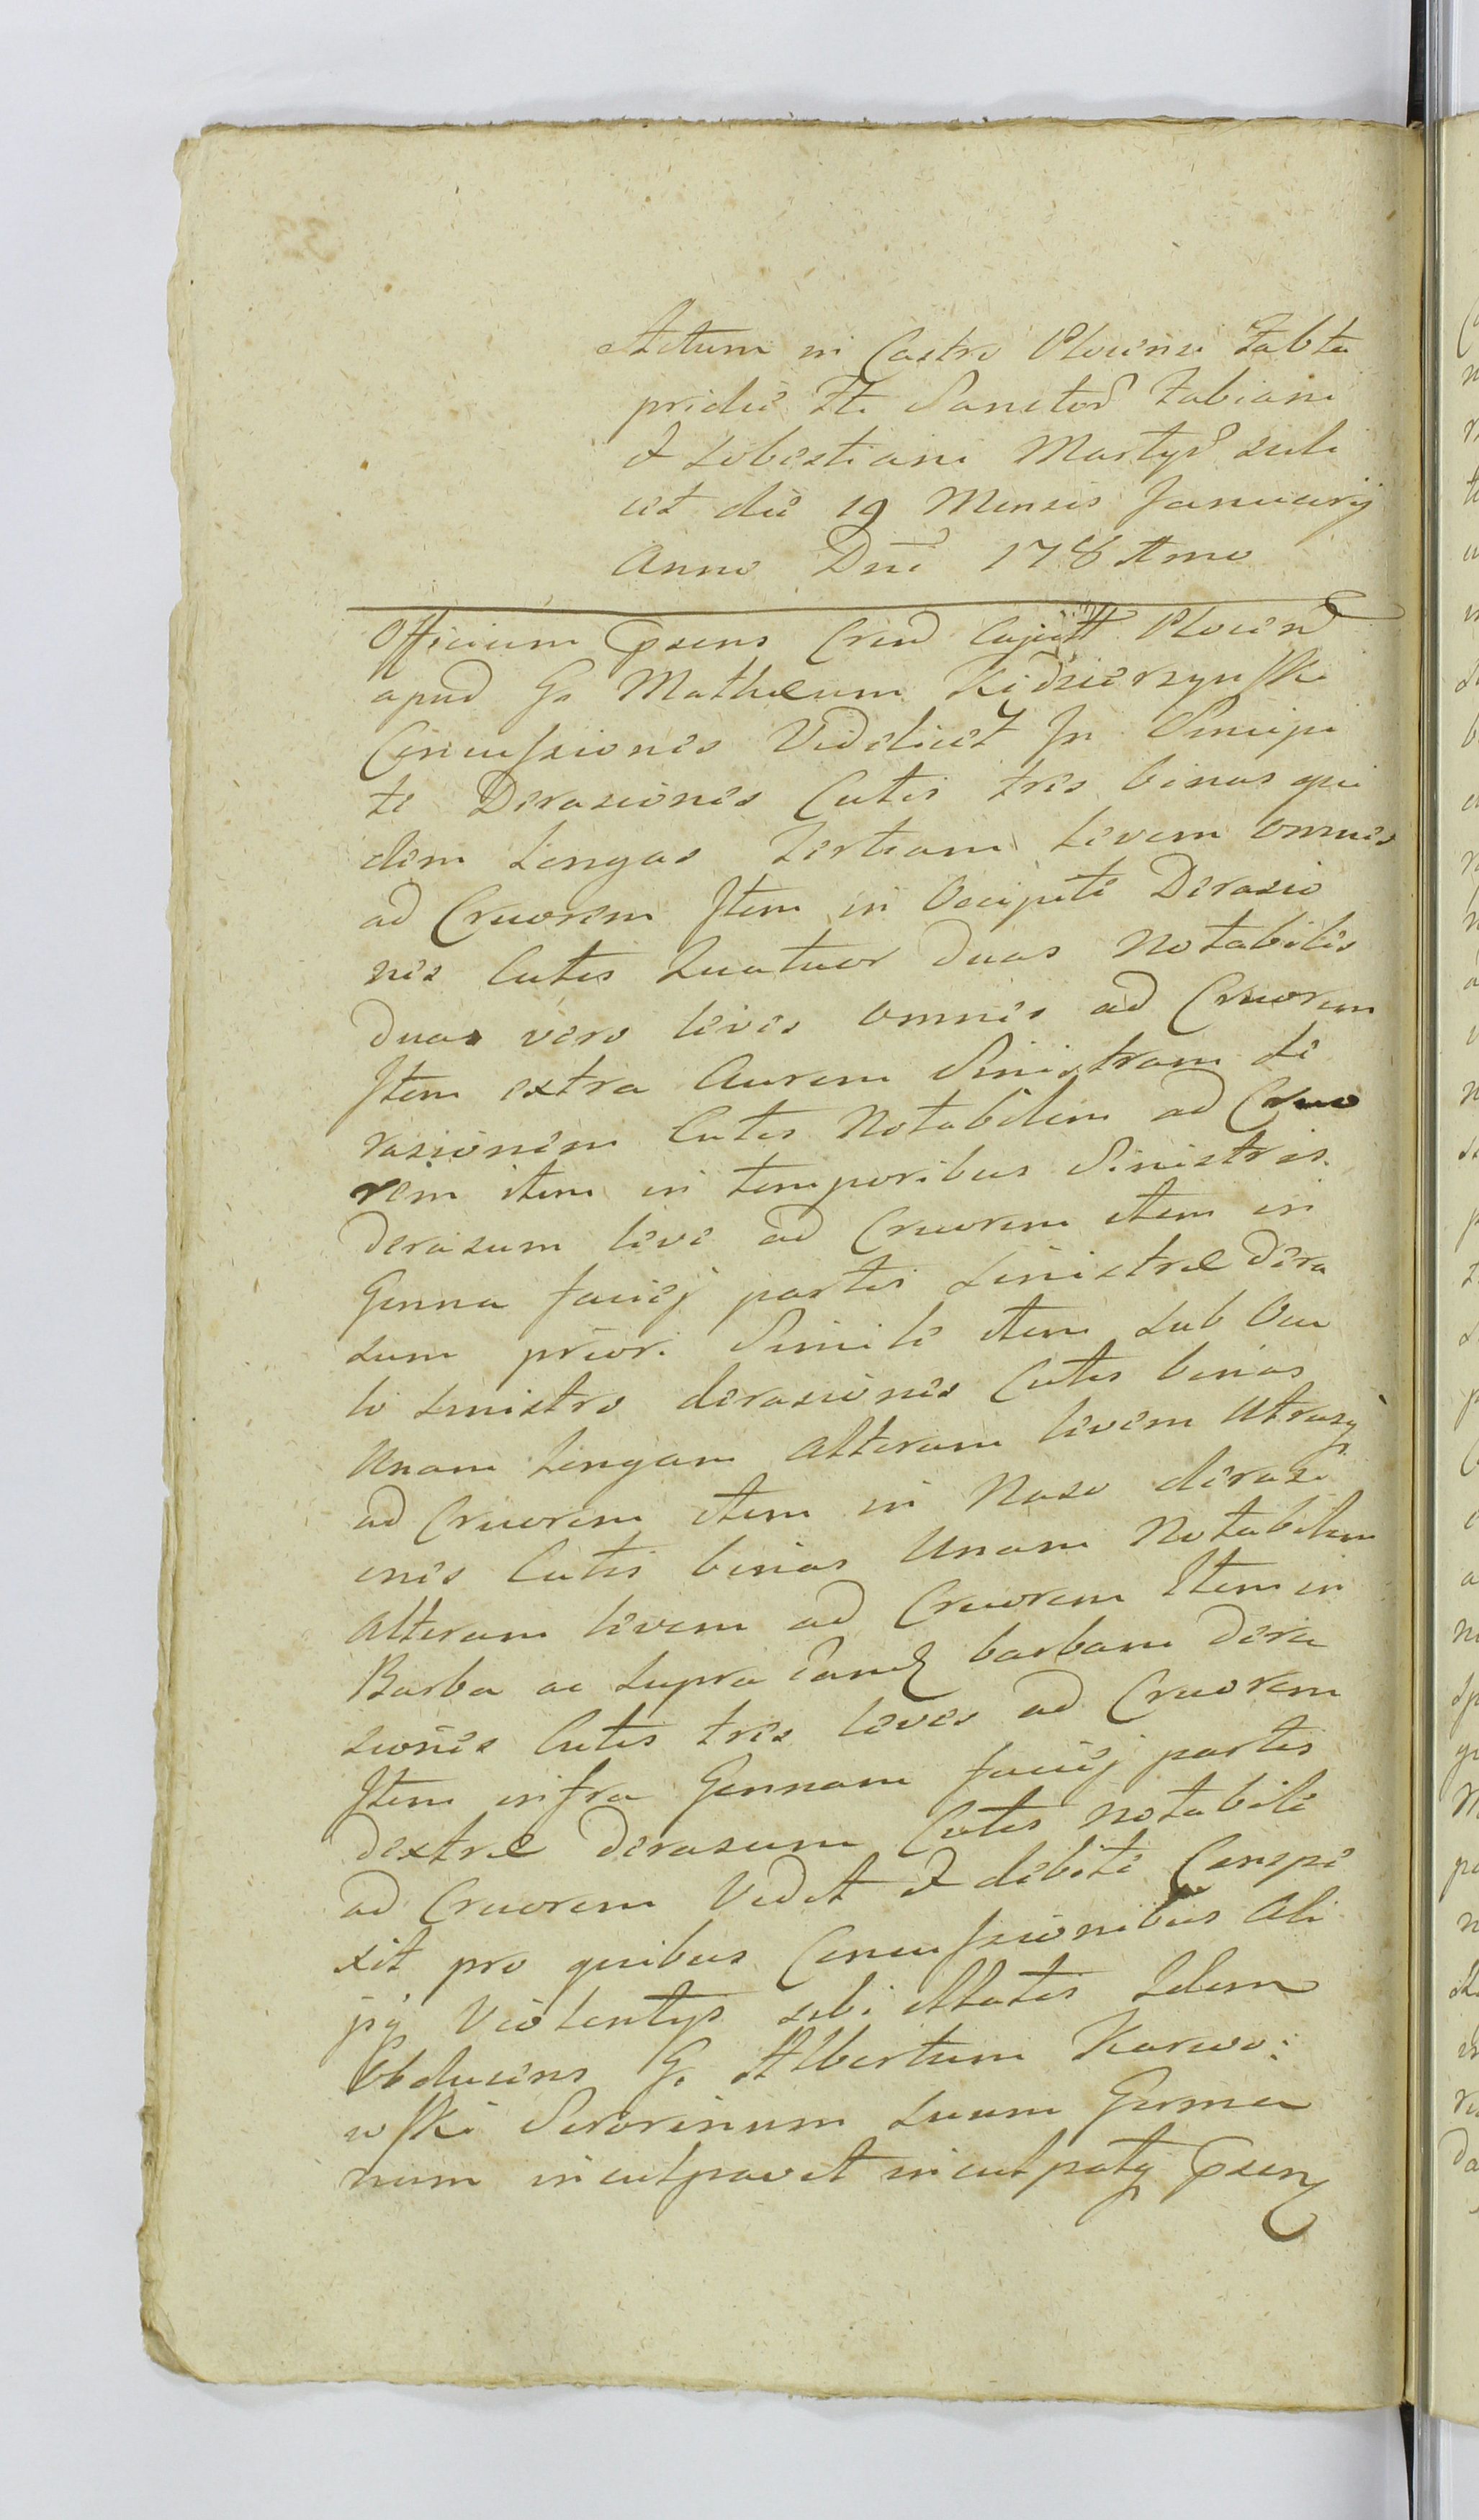 Actum in Castro Plocensi Sabto
pridie Fti Sanctor Fabiani
et Sebestiani Martyr scili
cet die 19 Mensis Januarij
Anno Dni 178
Officium psens Plocen
apud G. Mathæum Kędzierzynski
Concussiones Videlicet In Sincipi
te Derasiones Cutis tres binas qui
dem Longas tertiam levem omnes
ad Cruorem Item in Occipite Derasio
nes Cutis Quatuor duas Notabiles
duas vero leves omnes ad Cruorem
Item extra Aurem Sinistram de
rasionem Cutis Notabilem ad Cruo
rem item in temporibus Sinistris
derasum leve ad Cruorem item in
Genna faciej partis sinistræ dera
sum priori Simile item sub Ocu
lo sinistro derasiones Cutis binas
Unam Longam alteram levem utrasq
ad Cruorem item in Naso derasi
ones Cutis binas Unam Notabilem
alteram levem ad Cruorem Item in
Barba ac supra eand barbam dera
siones Cutis tres leves ad Cruorem
Item infra Gennam faciej partis
dextræ derasum Cutis notabile
ad Cruorem Vidit et debite Conspe
xit pro quibus Concussionibus ali
jsq Violentijs sibi illatis Idem
Obducens G. Albertum Karwo:
wski Sororinum suum Germa
num inculpavit inculpatq psen